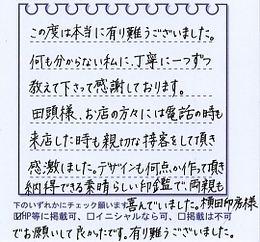 この度は本当に有り難うございました。
何も分からない私に、丁寧に一つずつ
教えて下さって感謝しております。
田頭様、お店の方々には電話の時も
来店した時も親切な接客をして頂き
感激しました。デザインも何点か作って頂き
納得できる素晴らしい印鑑で、両親も
下のいずれかにチェック願います 喜んでいました。横田印房様
☑HP等に掲載可、口イニシャルなら可、口掲載は不可
でお願いして良かったです。有り難うございました。